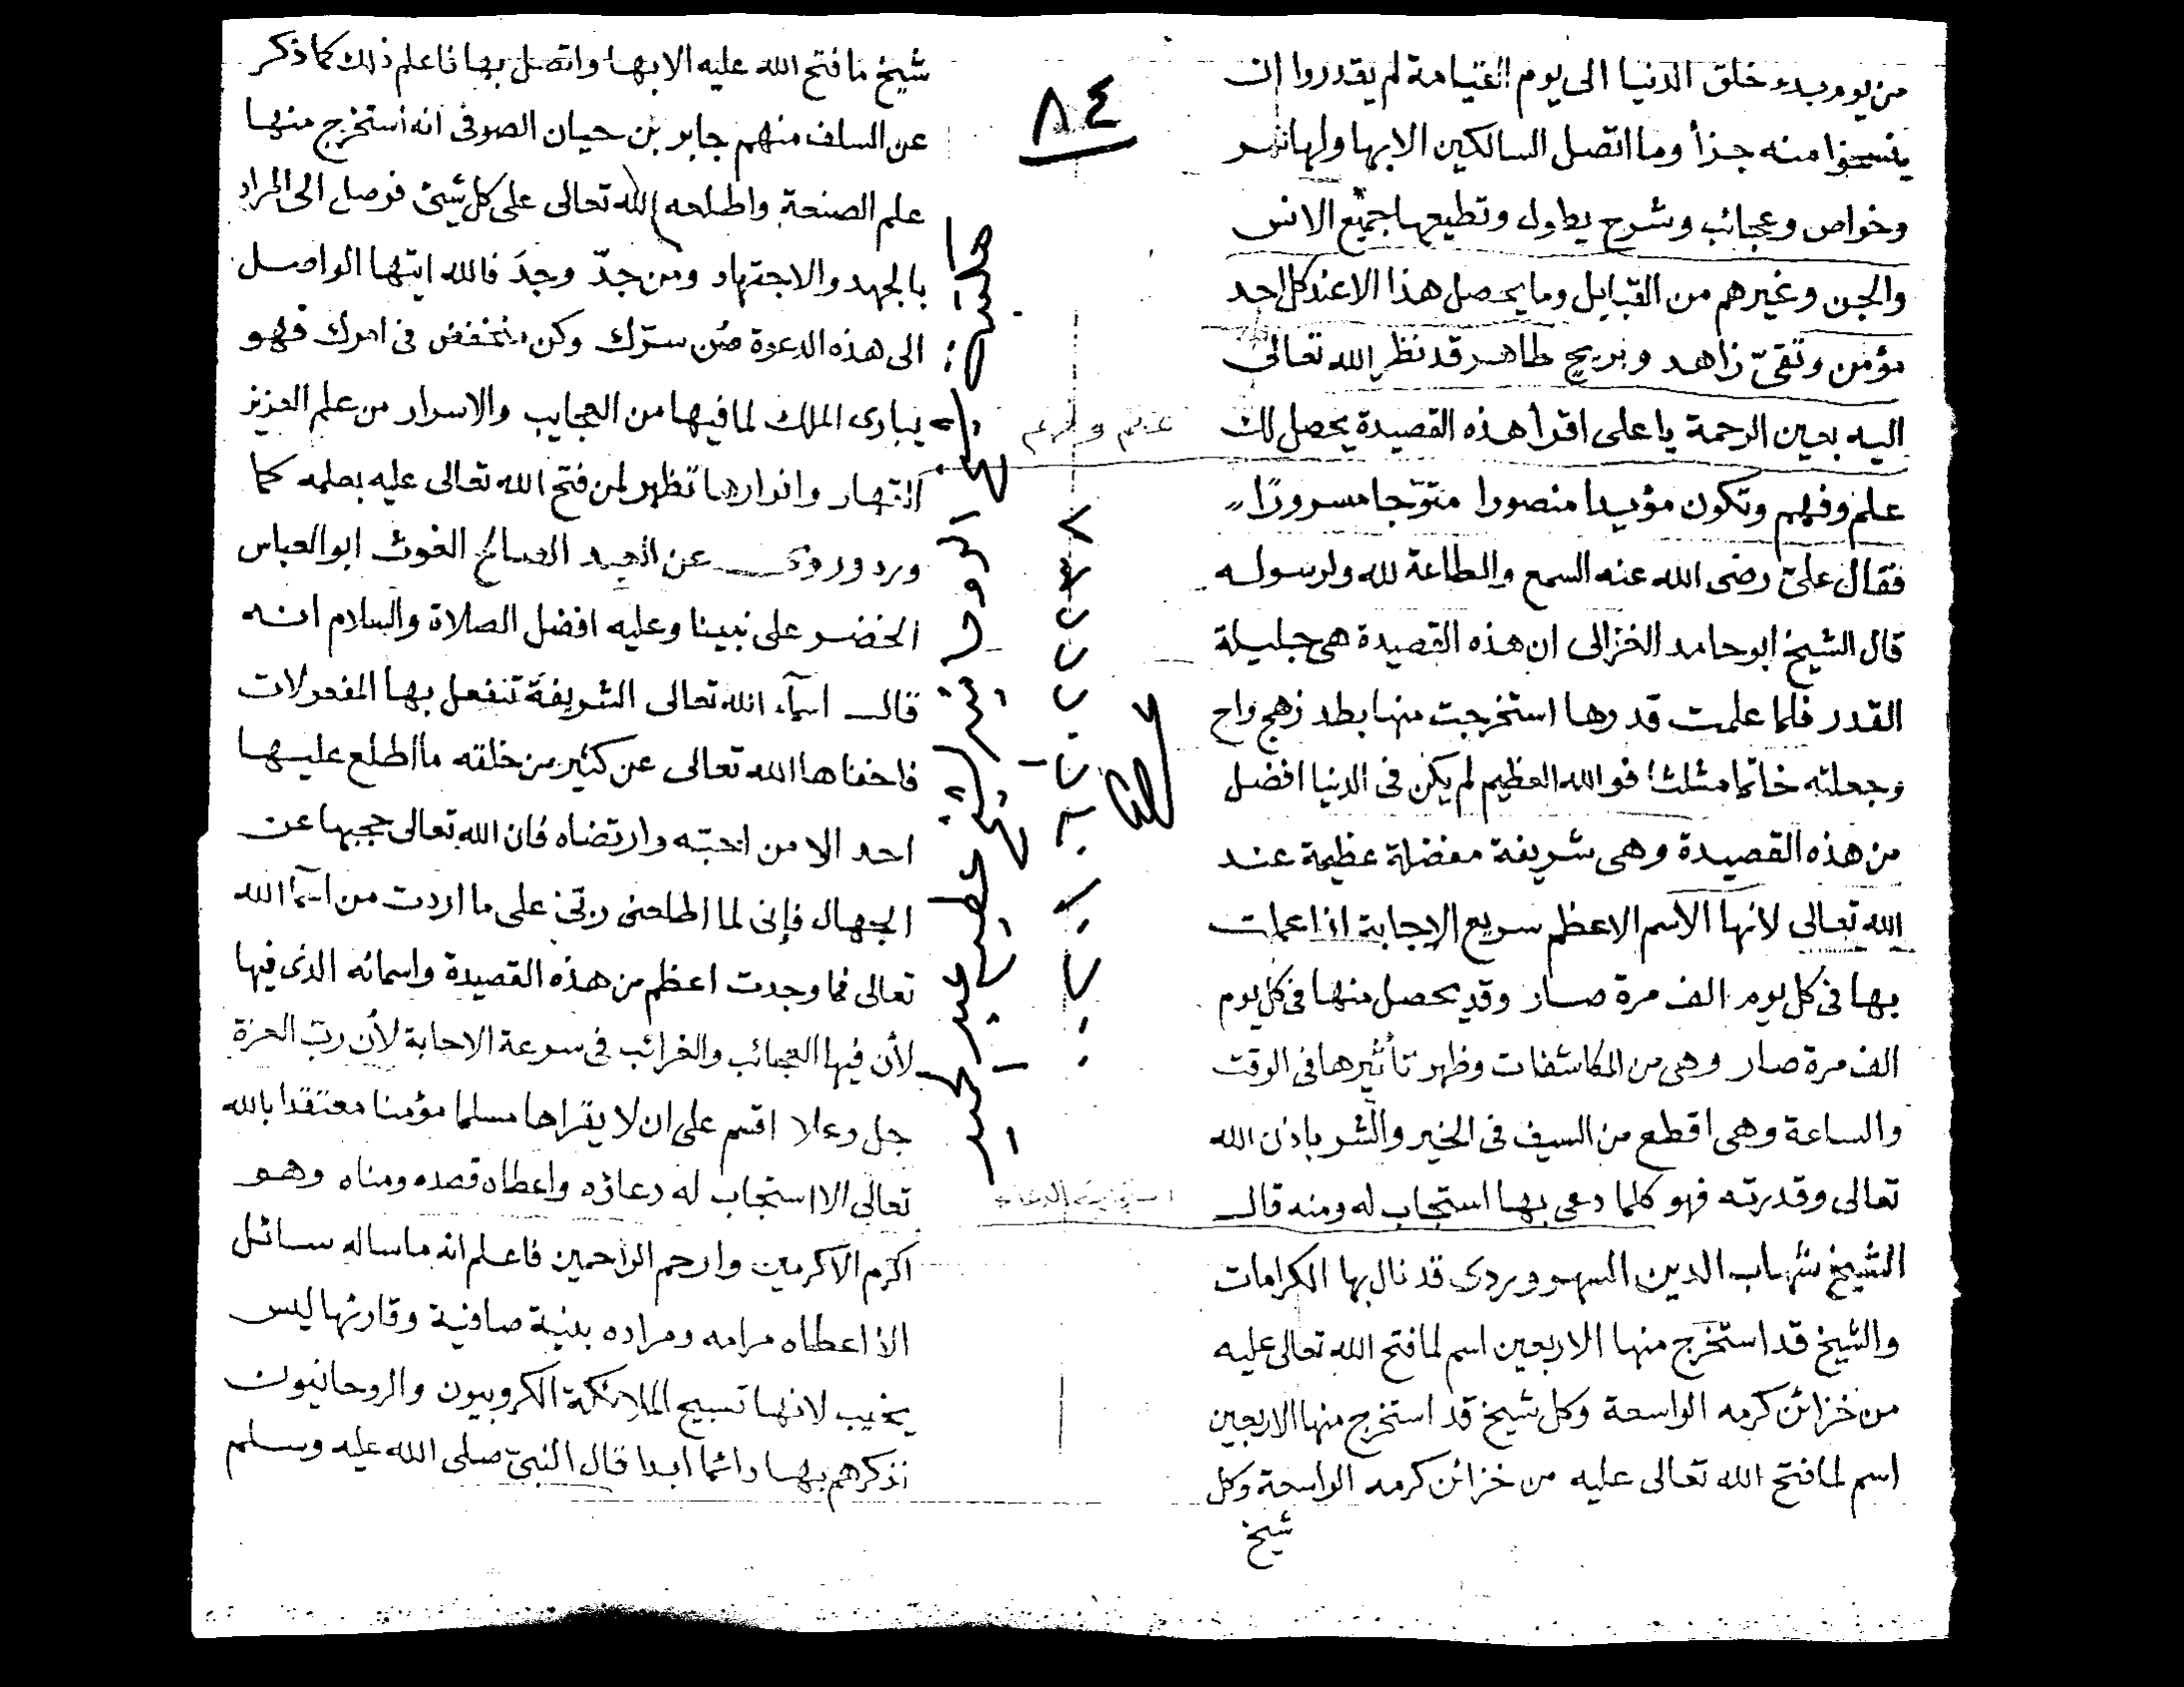 من يوم بدء خلق الدنيا الى يوم القيامة لم يقدروا ان
ينسخوا منه جزأ وما اتصل السالكين الا بها ولها
وخواص وعجائب وشرح يطول وتطيعها جميع الانس
والجن وغيرهم من القبايل وما يحصل هذا الا عند كل احد
مؤمن وتقىّ زاهد طاهر قد نظر الله تعالى
اليه بعين الرحمة يا على اقرأ هذه القصيدة يحصل لك
علم وفهم وتكون مؤيدا منصورا متوّجا مسرورًا
فقال علىّ رضى الله عنه السمع والطاعة لله ولرسوله
قال الشيخ ابو حامد الغزالى ان هذه القصيدة هى جليلة
القدر فلما علمت قدرها استخرجت منها بطد زهج واح
وجعلته خاتما مثلث فو الله العظيم لم يكن فى الدنيا افضل
من هذه القصيدة وهى شريفة مفضلة عظيمة عند
الله تعالى لأنها الاسم الاعظم سريع الاجابة اذا عملت
بها فى كل يوم الف مرة صار وقد يحصل منها فى كل يوم
الف مرة صار وهى من المكاشفات وظهر تأثيرها فى الوقت
والساعة وهى اقطع من السيف فى الخير والشر باذن الله
تعالى وقدرته فهو كلما دعى بها استجاب له ومنه قال
الشيخ شهاب الدين السهروردى قد نال بها الكرامات
والشيخ قد استخرج منها الاربعين اسم لما فتح الله تعالى عليه
من خزائن كرمه الواسعة وكل شيخ قد استخرج منها الاربعين
اسم لما فتح الله تعالى عليه من خزائن كرمه الواسعة وكل
شيخ
٨٤
علم وفهم
مكتبة الروحانى الشيخ عطية عبد الحميد
شيخ ما فتح الله عليه الا بها واتصل بها فاعلم ذلك كما ذكر
عن السلف منهم جابر بن حيان الصوفى انه استخرج منها
علم الصنعة واطلعه الله تعالى على كل شئ فوصل الى المراد
بالجهد والاجتهاد ومن جدّ وجدَ فالله ايتها الواصل
الى هذه الدعوة صُن سرّك وكن منخفض فى امرك فهو
يبارى الملك لما فيها من العجايب والاسرار من علم العزيز
القهار وانوارها تظهر لمن فتح الله تعالى عليه بعلمه كما
ورد وروى عن العبد الصالح الغوث ابو العباس
الخضر على نبينا وعليه افضل الصلاة والسلام انه
قال اسمآء الله تعالى الشريفة تنفعل بها المفعولات
فاخفاها الله تعالى عن كثير من خلقه ما اطلع عليها
احد الا من احبّه وارتضاه فان الله تعالى حجبها عن
الجهال فإنى لما اطلعنى ربّى على ما اردت من اسمآ الله
تعالى فما وجدت اعظم من هذه القصيدة واسمائه الذى فيها
لأن فيها العجائب والغرائب فى سرعة الاجابة لأن ربّ العزة
جل وعلا اقسم على ان لا يقراها مسلما مؤمنا معتقدا بالله
تعالى الا استجاب له دعاؤه واعطاه قصده ومناه وهو
اكرم الاكرمين وارحم الراحمين فاعلم انه ما ساله سائل
الا اعطاه مرامه ومراده بنية صافية وقارئها ليس
يخيب لانها تسبيح الملائكة الكروبيون والروحانيون
نذكرهم بها دائما ابدا قال النبىّ صلى الله عليه وسلم